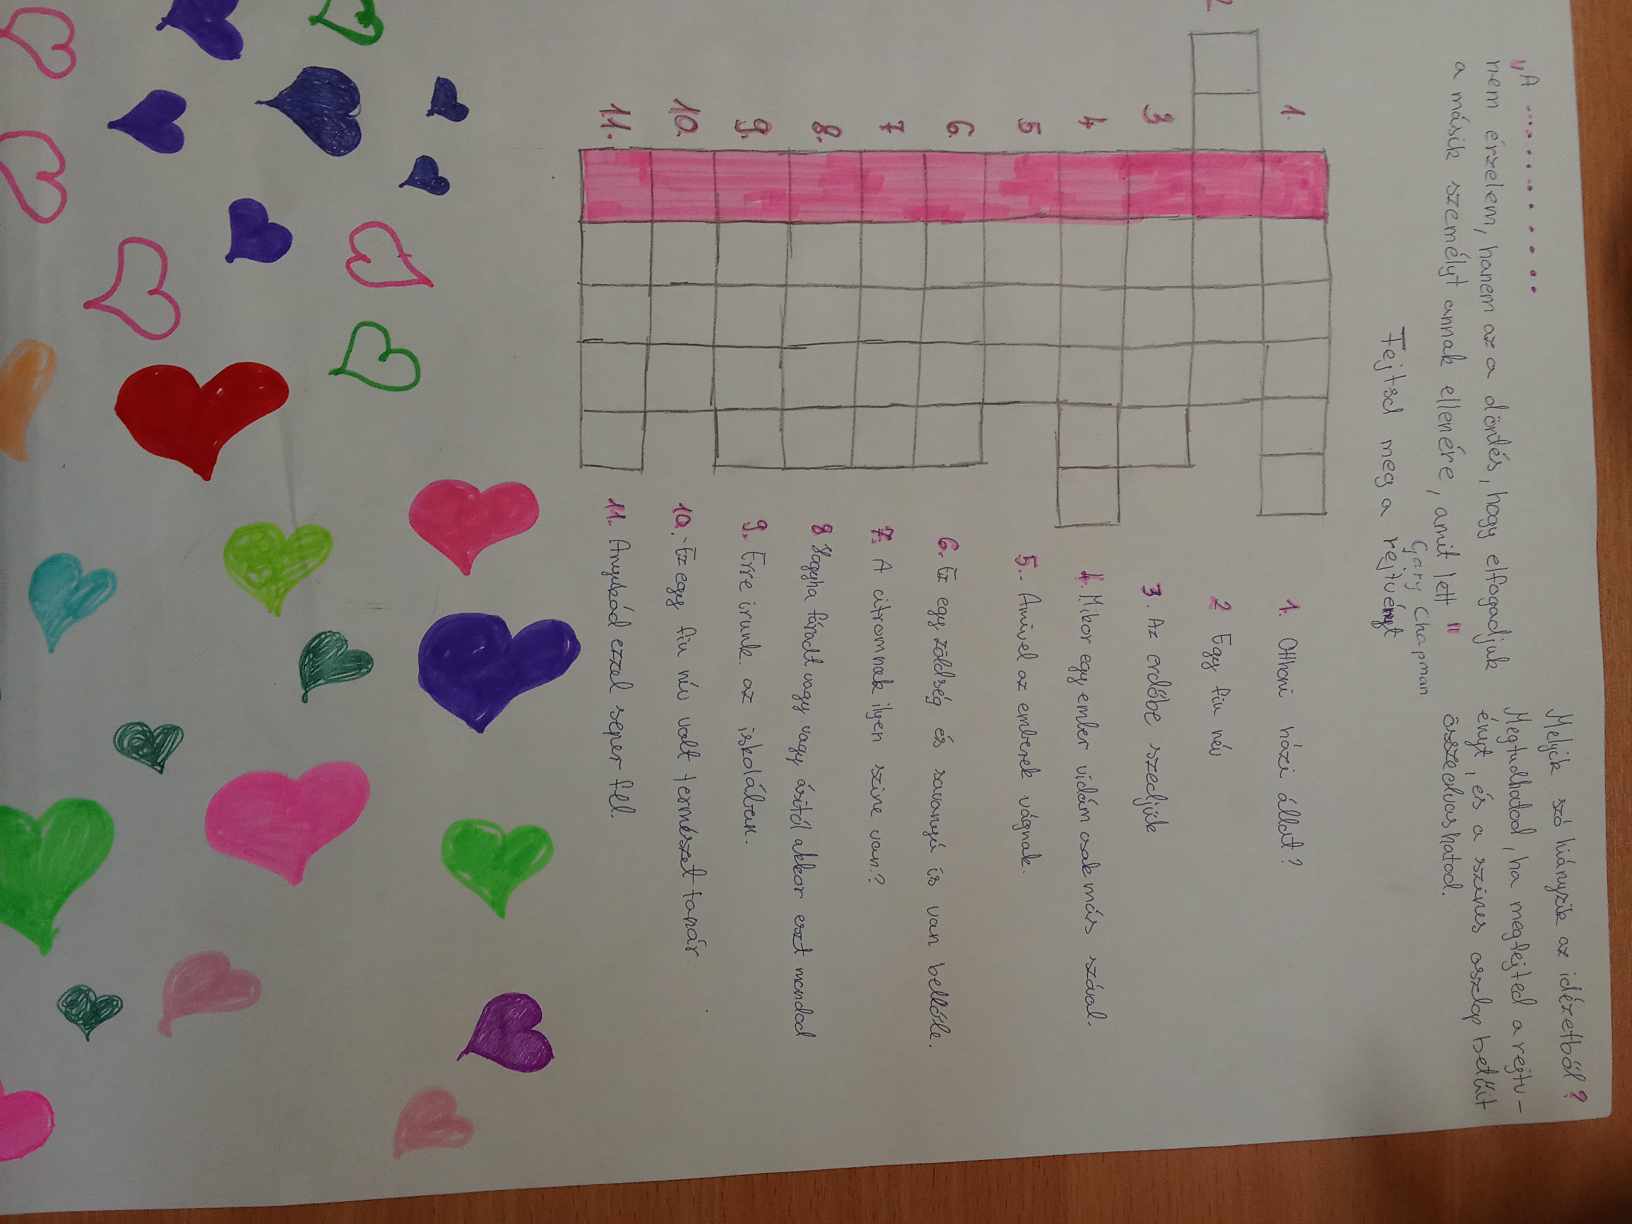 Melyik szó hiányzik az idézetből?
Megtudhatod, ha megfejted a rejtv-
ényt, és a színes oszlop betűit
összeolvashatod.
"A ...........
nem érzelem, hanem az a döntés, hogy elfogadjuk
a másik személyt annak ellenére, amit tett"
Gary Chapman
Fejtsd meg a rejtvényt
1.
2
3
4
5
6
7
8.
9.
10.
11.
1. Otthoni házi állat?
2 Egy fiu név
3. Az erdőbe szedjük
4. Mikor egy ember vidám csak más szóval.
5. Amivel az emberek vágnak.
6. Ez egy zöldség és savanyú is van belőlle.
7. A citromnak ilyen színe van?
8 Hogyha fáradt vagy vagy ásítól akkor eszt mondod
9. Erre irunk az iskolában.
10. Ez egy fiu név volt természet tanár
11. Anyukád ezzel seper fel.